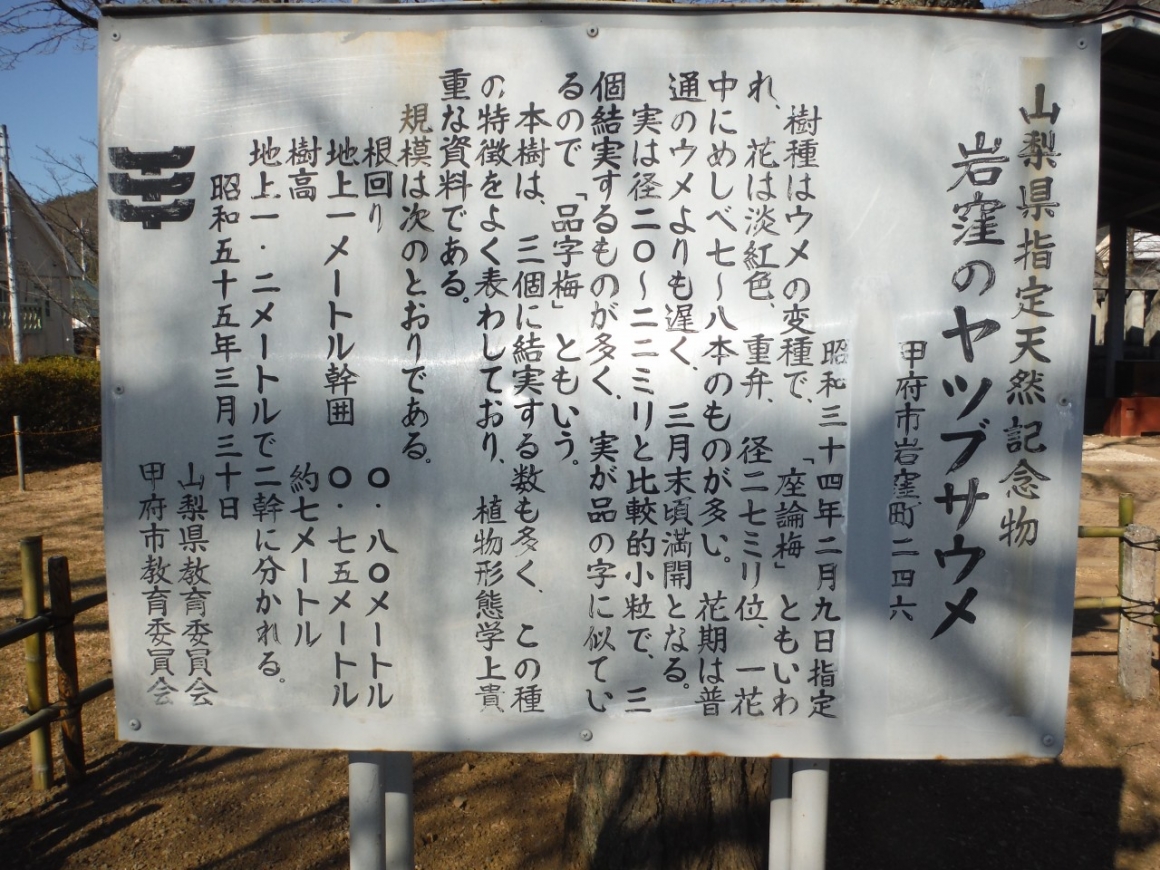 山梨県指定天然記念物
岩窪のヤツブサウメ
甲府市岩窪町二四六
昭和三十四年二月九日指定
樹種はウメの変種で、「座論梅」ともいわ
れ、花は淡紅色、重弁、径二七ミリ位、一花
中にめしべ七〜八本のものが多い。花期は普
通のウメよりも遅く、三月末頃満開となる。
実は径二〇〜二二ミリと比較的小粒で、三
個結実するものが多く、実が品の字に似てい
るので「品字梅」ともいう。
本樹は、三個に結実する数も多く、この種
の特徴をよく表わしており、植物形態学上貴
重な資料である。
規模は次のとおりである。
根回り 〇・八〇メートル
地上一メートル幹囲 〇・七五メートル
樹高 約七メートル
地上一・二メートルで二幹に分かれる。
昭和五十五年三月三十日
山梨県教育委員会
甲府市教育委員会